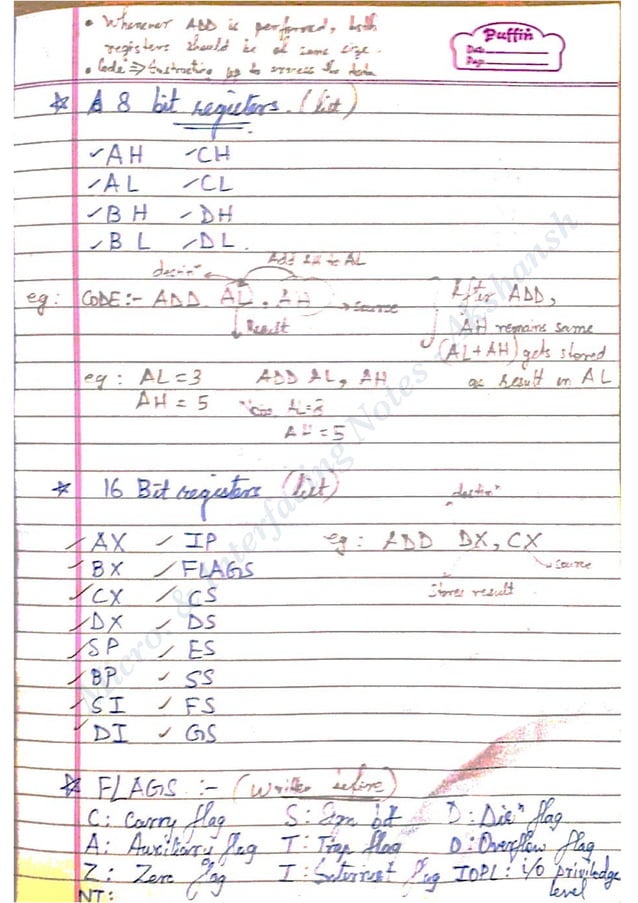 • Whenever ADD is performed, both
registers should be of same size.
• Code => Instructing to access the data
Puffin
Date
Page
* 8 bit registers. (list)
✓AH ✓CH
✓AL ✓CL
✓BH ✓DH
✓BL ✓DL.
Add AH to AL
destinⁿ
eg: CODE:- ADD AL, AH → source
↓ Result
After ADD,
AH remains same
(AL+AH) gets stored
as result in AL
eg: AL=3 ADD AL, AH
AH = 5 AL=8
AH=5
* 16 Bit registers (list)
destinⁿ
✓AX ✓ IP eg: ADD DX, CX
source
✓BX ✓ FLAGS
stores result
✓CX ✓ CS
✓DX ✓ DS
✓SP ✓ ES
✓BP ✓ SS
✓SI ✓ FS
✓DI ✓ GS
* FLAGS :- (Written before)
C: Carry flag S: Sign bit D: Dirⁿ flag
A: Auxiliary flag T: Trap flag O: Overflow flag
Z: Zero flag I: Interrupt flag IOPL: i/o priviledge
level
NT:
Micro. & Interfacing Notes - Akshansh